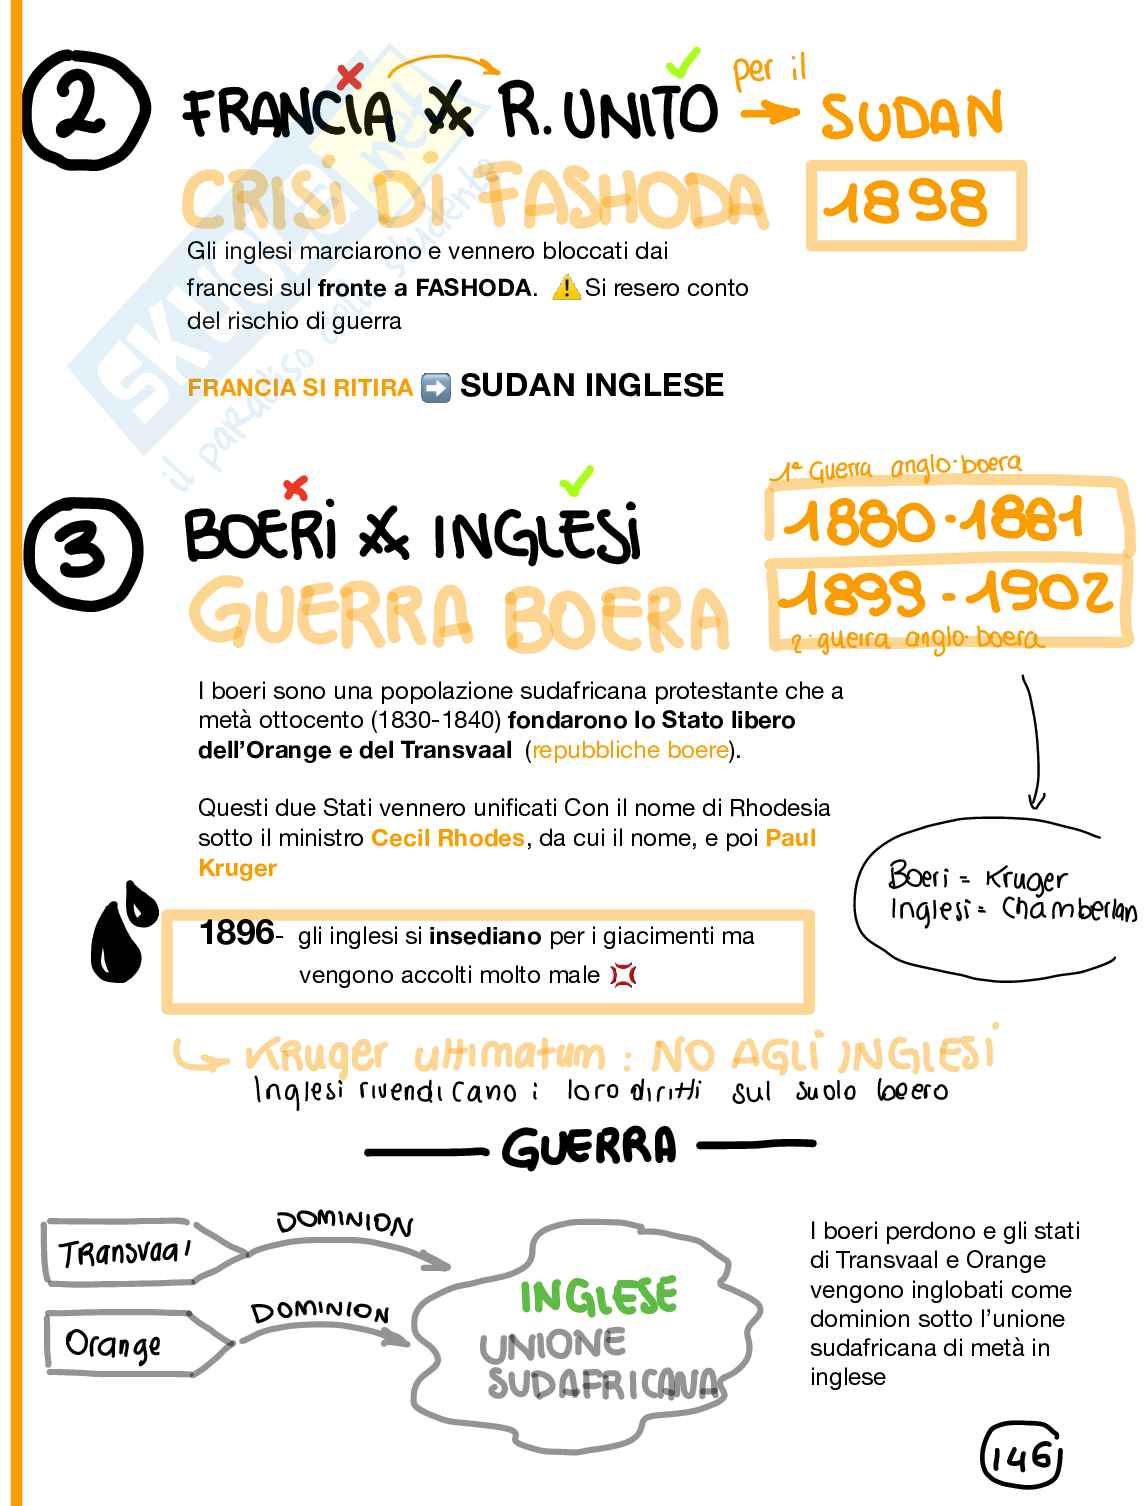 2
FRANCIA R. UNITO per il SUDAN
CRISI DI FASHODA 1898
Gli inglesi marciarono e vennero bloccati dai
francesi sul fronte a FASHODA. ⚠️Si resero conto
del rischio di guerra
FRANCIA SI RITIRA ➡️ SUDAN INGLESE
SKUOLA.net
il paradiso dello studente
3
BOERI INGLESI
1ª Guerra anglo-boera
1880-1881
GUERRA BOERA
1899-1902
2ª guerra anglo-boera
I boeri sono una popolazione sudafricana protestante che a
metà ottocento (1830-1840) fondarono lo Stato libero
dell’Orange e del Transvaal (repubbliche boere).
Questi due Stati vennero unificati Con il nome di Rhodesia
sotto il ministro Cecil Rhodes, da cui il nome, e poi Paul
Kruger
Boeri = Kruger
Inglesi = Chamberlan
1896- gli inglesi si insediano per i giacimenti ma
vengono accolti molto male 💢
Kruger ultimatum: NO AGLI INGLESI
Inglesi rivendicano i loro diritti sul suolo boero
GUERRA
Transvaal DOMINION
Orange DOMINION
INGLESE
UNIONE
SUDAFRICANA
I boeri perdono e gli stati
di Transvaal e Orange
vengono inglobati come
dominion sotto l’unione
sudafricana di metà in
inglese
146